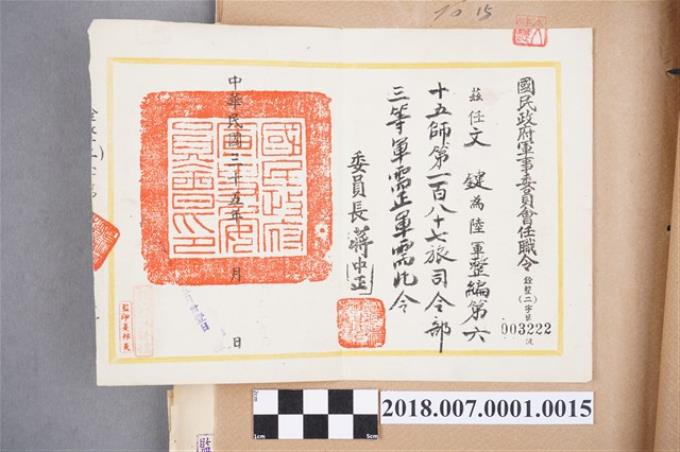 國民政府軍事委員會任職令
銓整(二)字第
003222
號
茲任文鍵為陸軍整編第六
十五師第一百八十七旅司令部
三等軍需正軍需此令
委員長蔣中正
中華民國三十五年 月 日
國民政府
軍事委
員會印
監印吳祥英
70 15
2018.007.0001.0015
1cm
5cm